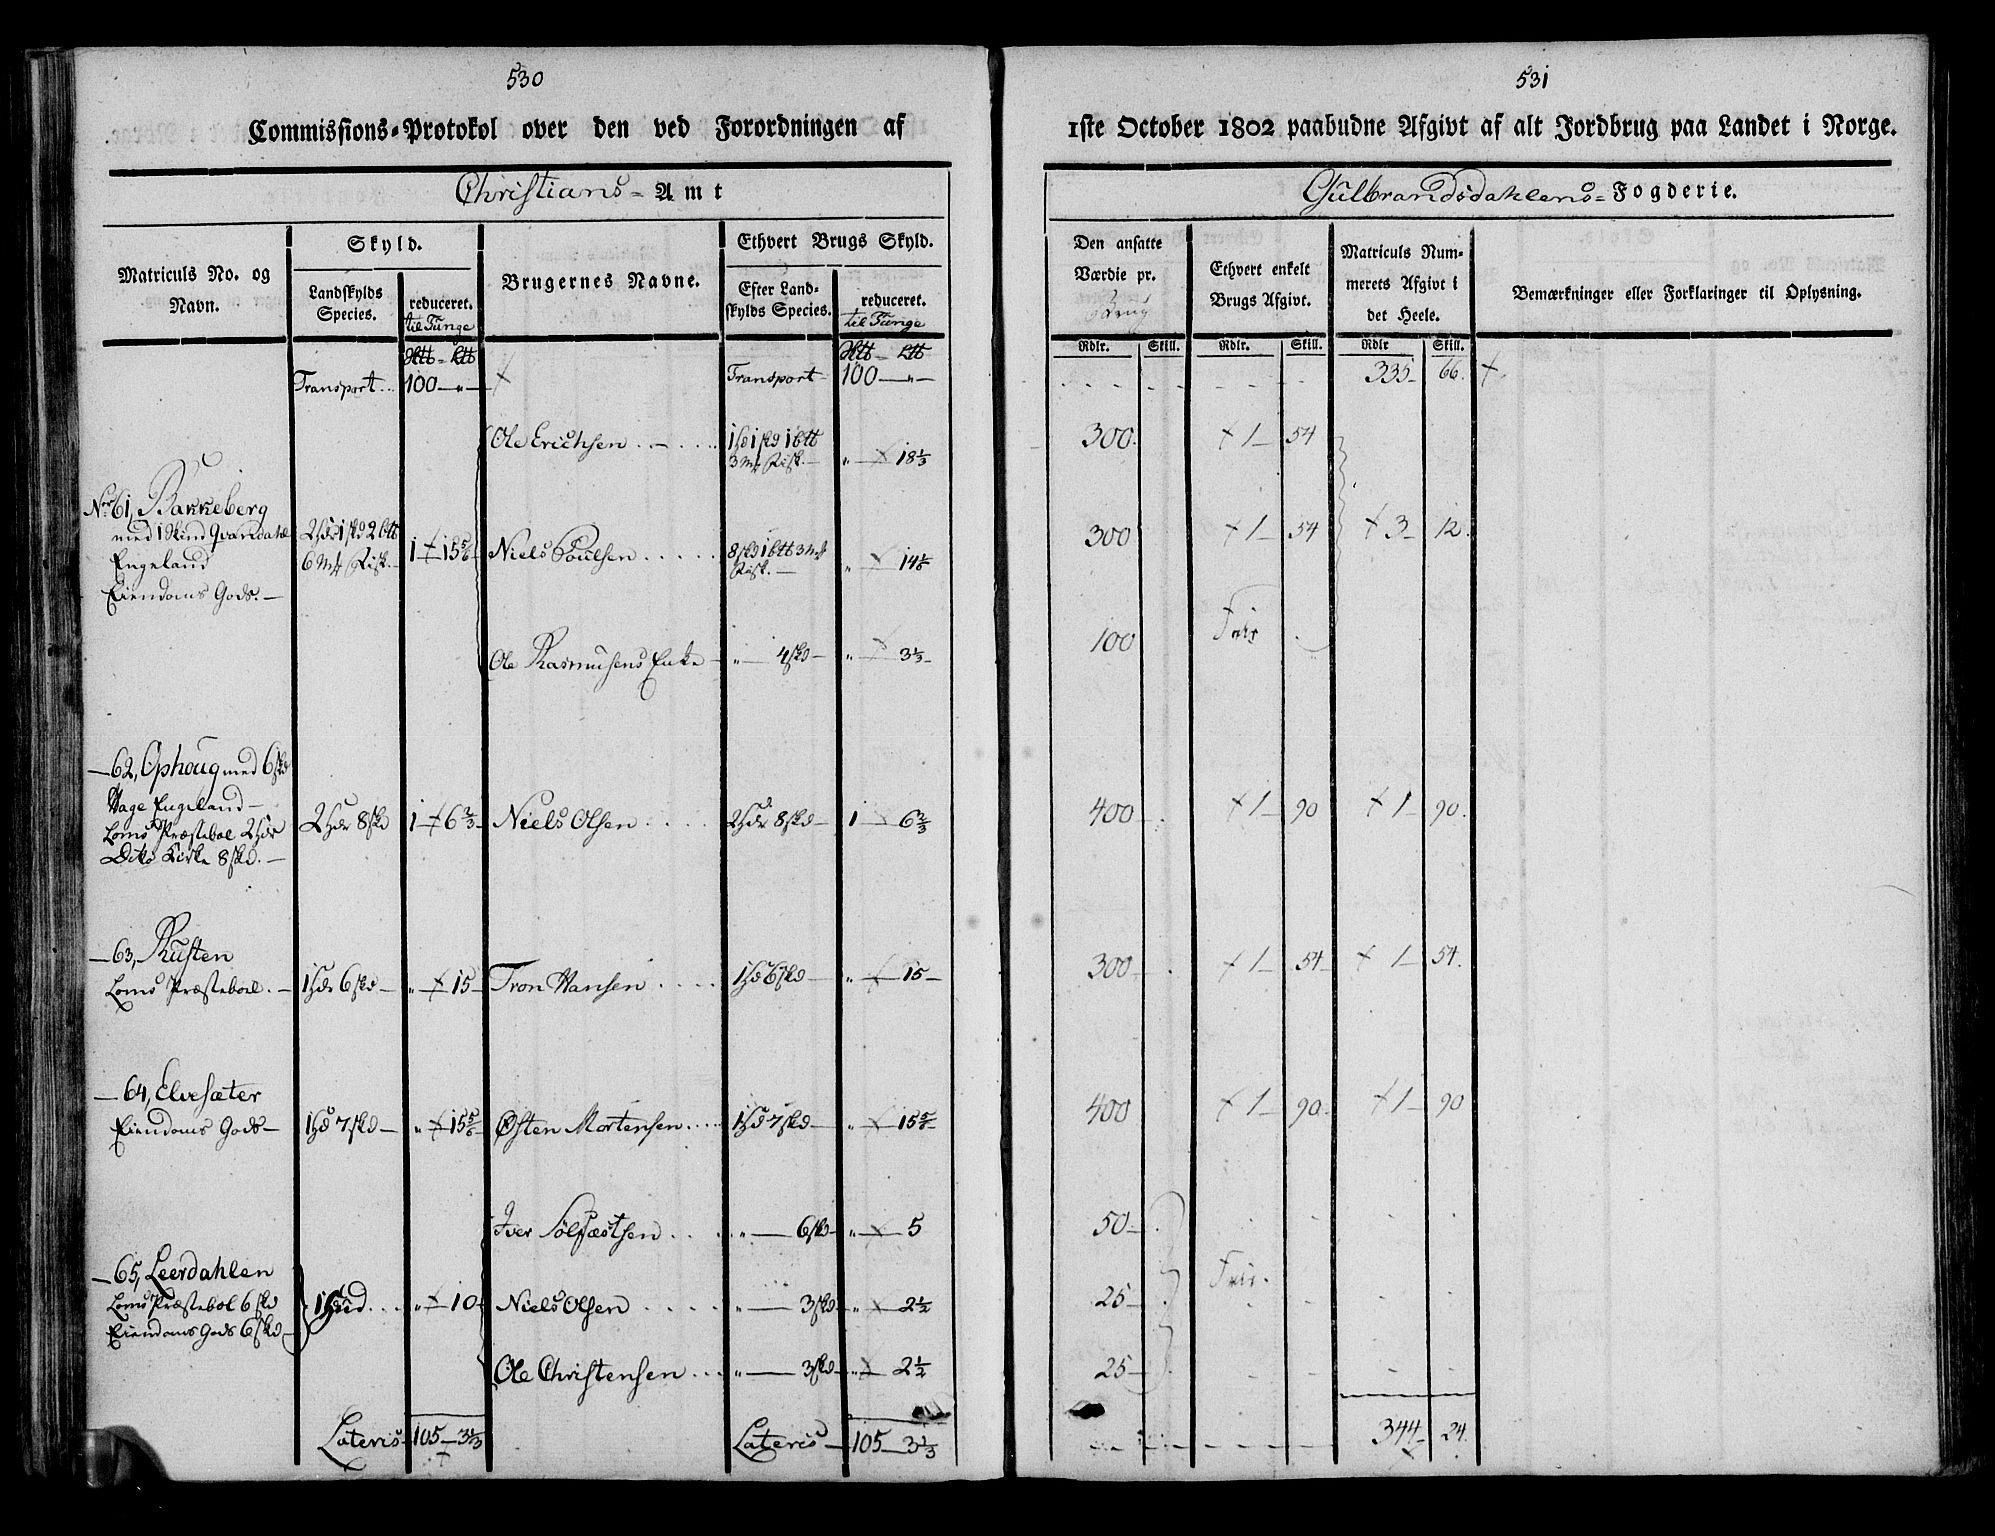 530
Commissions-Protokol over den ved Forordningen af
Christians- Amt
Matriculs No. og Navn.
Skyld.
Landskylds Species.
reduceret. til Tunge
Brugernes Navne.
Ethvert Brugs Skyld.
Efter Landskylds Species.
reduceret. til Tunge
Transport 100 — " —
Transport 100 — " —
Ole Erichsen 1 hd 1 skd 1 btt
3 Mk Fisk. — " — 18 1/3
No 61, Bakkeberg
med 1 Skind Qvandahl
Engeland
Eiendoms Gods. —
2 hdr 1 skd 2 btt
6 Mk Fisk. — 1 — 15 5/6
Niels Poulsen 8 skd 1 btt 3 Mk
Fisk. — " — 14 1/6
Ole Rasmusens Enke — " — 4 skd — " — 3 1/3 —
— 62, Ophoug med 6 skd
Hage Engeland —
Loms Præsteboel 2 hdr
Dito Kirke 8 skd. —
2 hdr 8 skd 1 — 6 2/3 — Niels Olsen 2 hdr 8 skd — 1 — 6 2/3
— 63, Rusten
Loms Præsteboel. — 1 hdr 6 skd — " — 15 — Tron Hansen 1 hd 6 skd — " — 15 —
— 64, Elvesæter
Eiendoms Gods — 1 hd 7 skd — " — 15 5/6 Østen Mortensen 1 hd 7 skd — " — 15 5/6
Iver Sølfæstsen " — 6 skd — " — 5
— 65, Leerdahlen
Loms Præsteboel 6 skd
Eiendoms Gods 6 skd —
1 Hud " — 10 Niels Olsen " — 3 skd — " — 2 1/2
Ole Christensen " — 3 skd — " — 2 1/2
Lateris — 105 — 3 1/3
Lateris — 105 — 3 1/3
531
1ste October 1802 paabudne Afgivt af alt Jordbrug paa Landet i Norge.
Gulbrandsdahlens- Fogderie.
Den ansatte Værdie pr. Brug
Ethvert enkelt Brugs Afgivt.
Matriculs Nummerets Afgivt i det Heele.
Bemærkninger eller Forklaringer til Oplysning.
Rdlr. Skill. Rdlr. Skill. Rdlr Skill.
335 — 66.
300. 1 — 54
300 1 — 54 3 — 12.
100 Frie
400 — 1 — 90 1 — 90.
300 — 1 — 54 — 1 — 54.
400 1 — 90. 1 — 90
50 —
25 — Frie.
25 —
344 — 24.